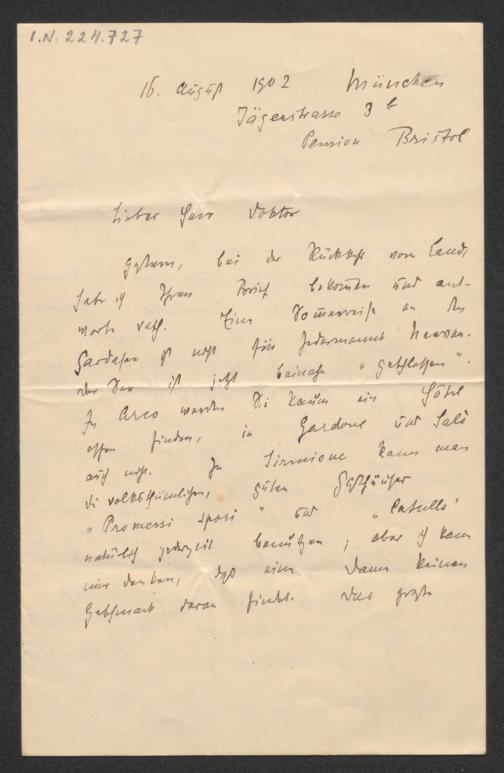 I.N. 224.727
16. August 1902 München
Jägerstrasse 3 b
Pension Bristol
Lieber Herr Doktor
gestern, bei der Rückkehr vom Land,
habe ich Ihren Brief bekommen und ant-
worte rasch. Eine Sommerreise an den
Gardasee ist nicht für Jedermanns Nerven.
der See ist jetzt beinahe "geschlossen".
In Arco werden Sie kaum ein Hôtel
offen finden, in Gardone und Salò
auch nicht. In Sirmione kann man
die volksthümlichen, guten Gasthäuser
"Promessi sposi" und "Catullo"
natürlich jederzeit benützen; aber ich kann
mir denken, daß eine Dame keinen
Geschmack daran findet. Das große